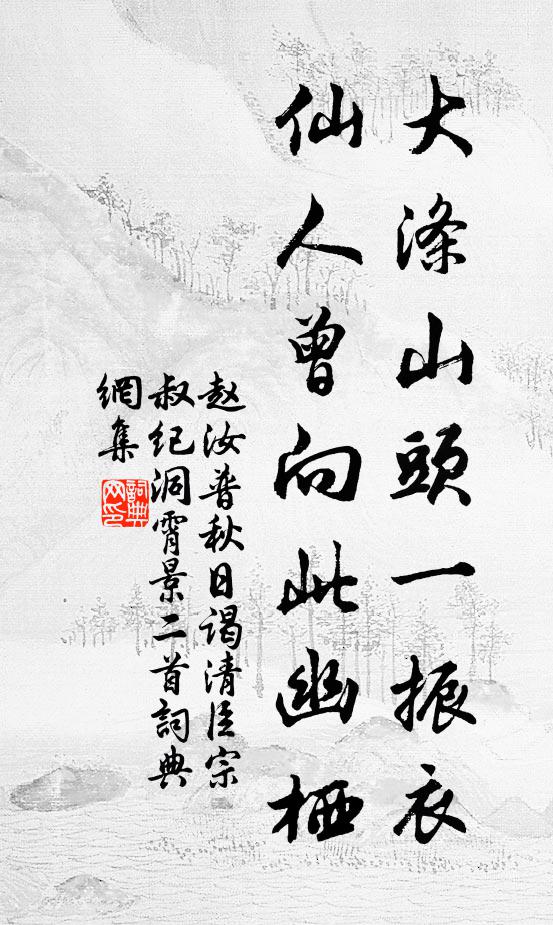 大滌山頭一振衣
仙人曾向此幽栖
赵汝普秋日谒清臣宗
叔纪洞霄景二首詞典
網集
詞典
网印